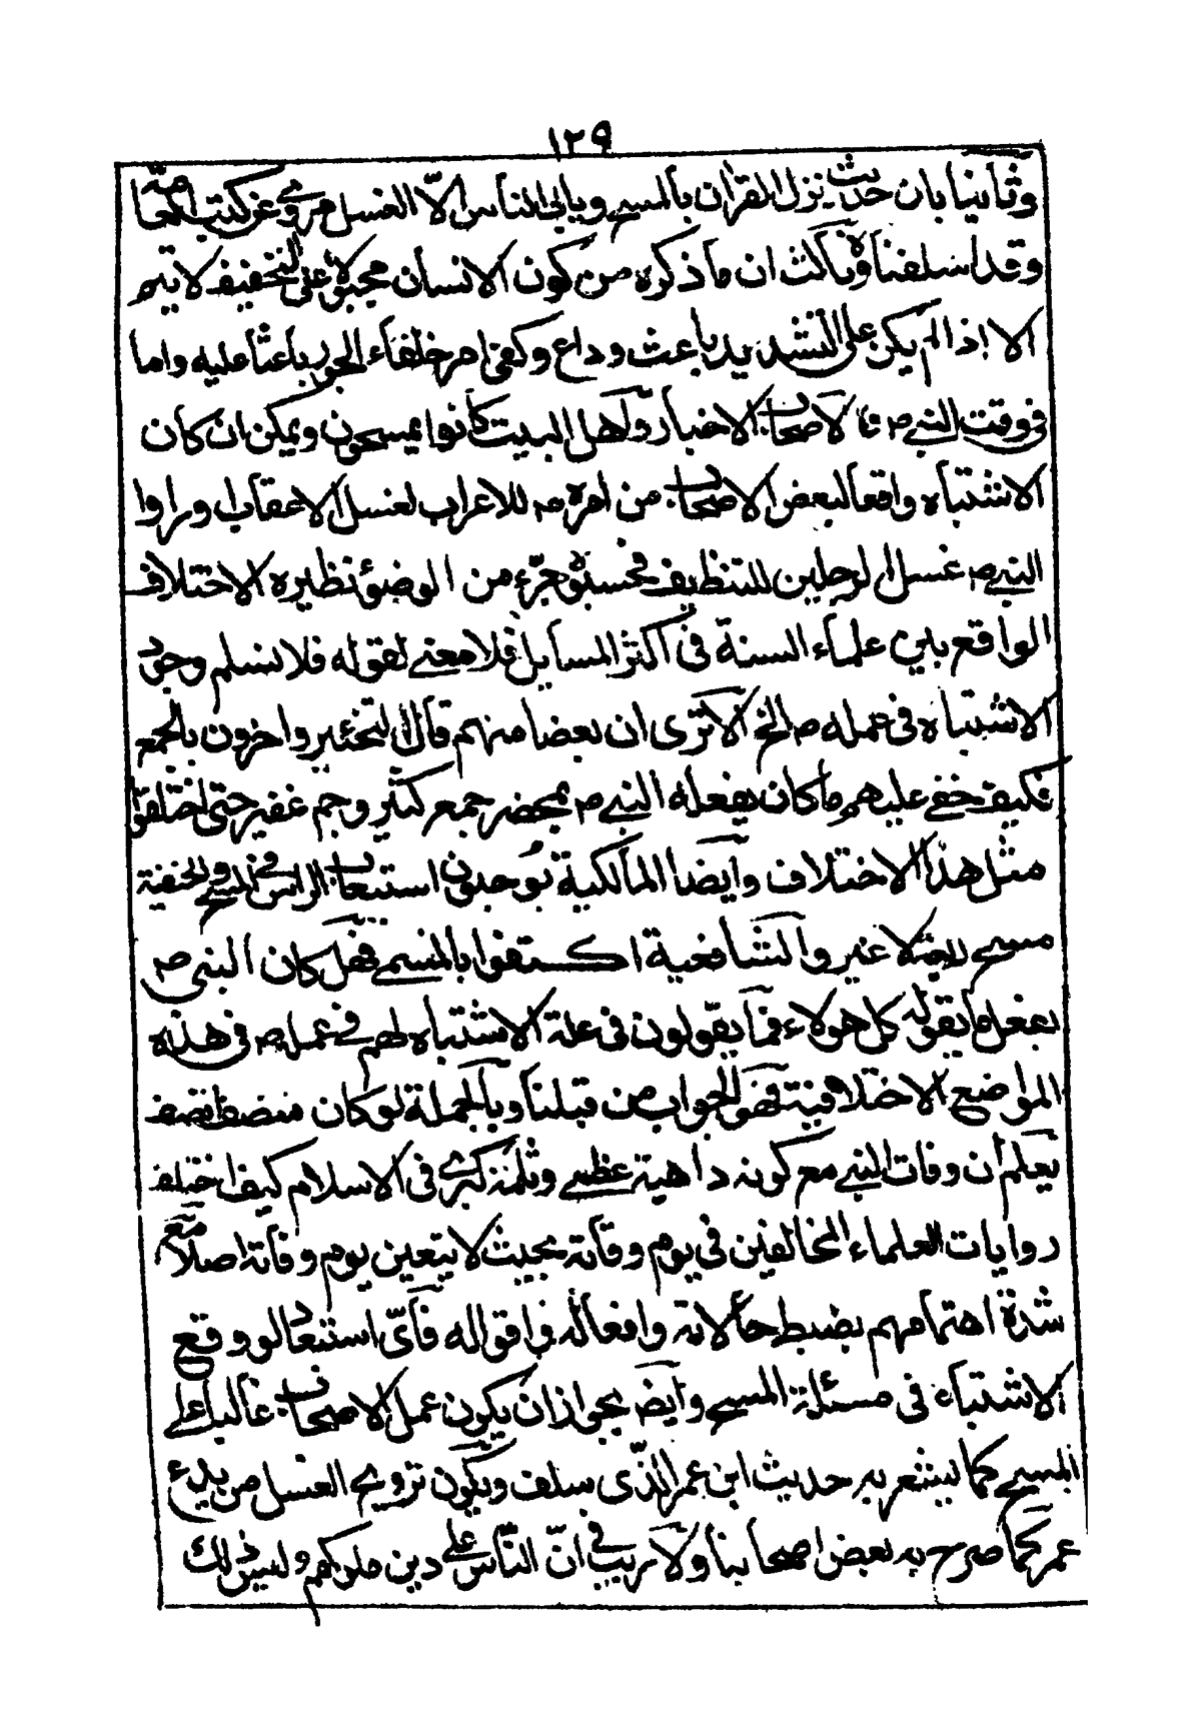 ١٢٩
وثانيا بان حديث نزل القران بالمسح ويابى الناس الّا الغسل مروي عن كتب العامة
وقد اسلفناه وثالثا ان ما ذكره من كون الانسان مجبولا على التخفيف لا يتم
الا اذا لم يكن على التشديد باعث وداع وكفى امر خلفاء الجور باعثا عليه واما
فى وقت النبي ص فالاصحاب الاخيار واهل البيت كانوا يمسحون ويمكن ان كان
الاشتباه واقعا لبعض الاصحاب من امره ص للاعراب لغسل الاعقاب وراوا
النبي ص غسل الرجلين للتنظيف فحسبوه جزء من الوضوء نظيره الاختلاف
الواقع بين علماء السنة فى اكثر المسايل فلا معنى لقوله فلا نسلم وجود
الاشتباه فى عمله ص الخ الا ترى ان بعضا منهم قال التخيير واخرون بالجمع
فكيف خفى عليهم ما كان يفعله النبي ص بمحضر جمع كثير وجم غفير حتى اختلفوا
مثل هذا الاختلاف وايضا المالكية يوجبون استيعاب الراس فى المسح والحنفية
مسح ربعه لا غير والشافعية اكتفوا بالمسح فهل كان النبى ص
يفعل ما يقوله كل هولاء فما يقولون فى علة الاشتباه لهم فى عمله ص فى هذه
المواضع الاختلافية فهو الجواب من قبلنا وبالجملة لو كان منصف
يعلم ان وفات النبي مع كونه داهية عظمى وثلمة كبرى فى الاسلام كيف اختلف
روايات العلماء المخالفين فى يوم وفاته بحيث لا يتعين يوم وفاته اصلا مع
شدة اهتمامهم بضبط حالاته وافعاله واقواله فاىّ استبعاد لو وقع
الاشتباه فى مسئلة المسح وايضا يجوز ان يكون عمل الاصحاب غالبا على
المسح كما يشعر به حديث ابن عمر الّذى سلف ويكون ترويج الغسل من بدع
عمر كما صرح به بعض اصحابنا ولا ريب فى انّ النّاس على دين ملوكهم وليس ذلك